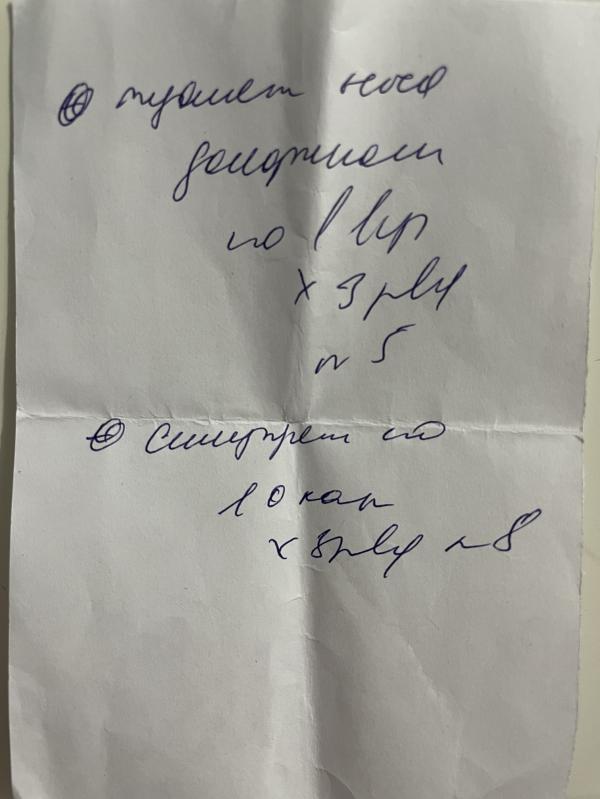 туалет носа
долфином
по 1 впр
х 3 р/д
n 5
синупрет по
10 кап
х 3 р/д n 8